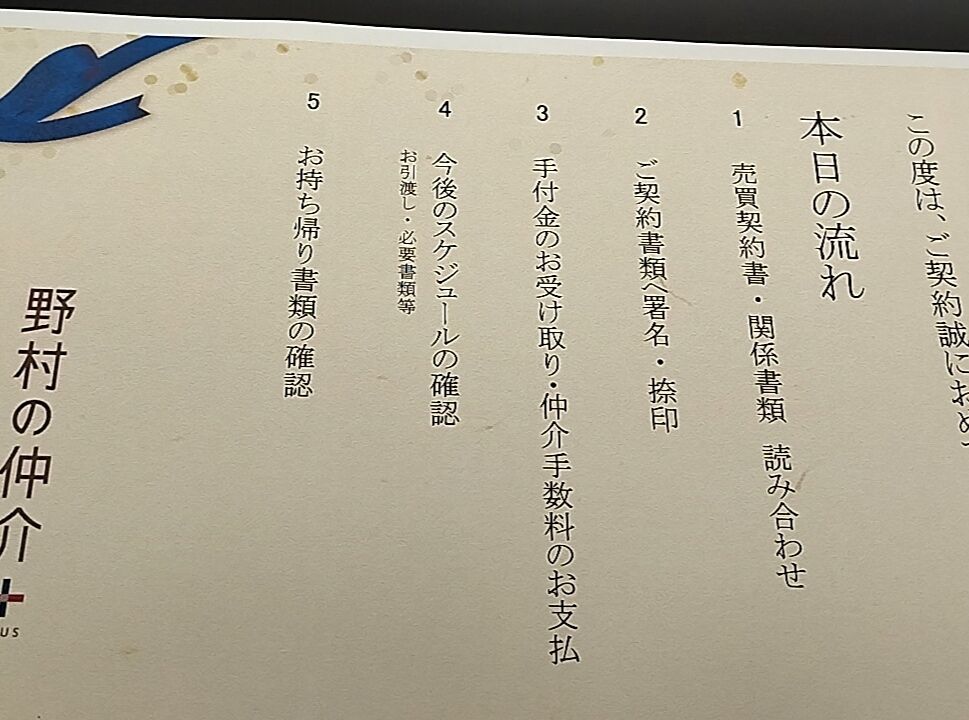 この度は、ご契約誠におめ
本日の流れ
1 売買契約書・関係書類 読み合わせ
2 ご契約書類へ署名・捺印
3 手付金のお受け取り・仲介手数料のお支払
4 今後のスケジュールの確認
お引渡し・必要書類等
5 お持ち帰り書類の確認
野村の仲介
+
US